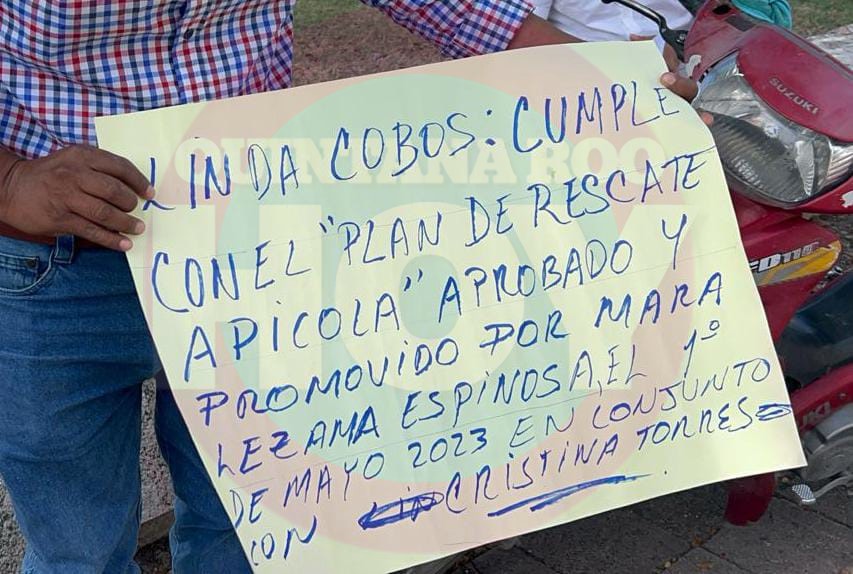 LINDA COBOS: CUMPLE
CON EL "PLAN DE RESCATE
APICOLA" APROBADO Y
PROMOVIDO POR MARA
LEZAMA ESPINOSA, EL 1º
DE MAYO 2023 EN CONJUNTO
CON CRISTINA TORRES.
QUINTANA ROO
HOY
SUZUKI